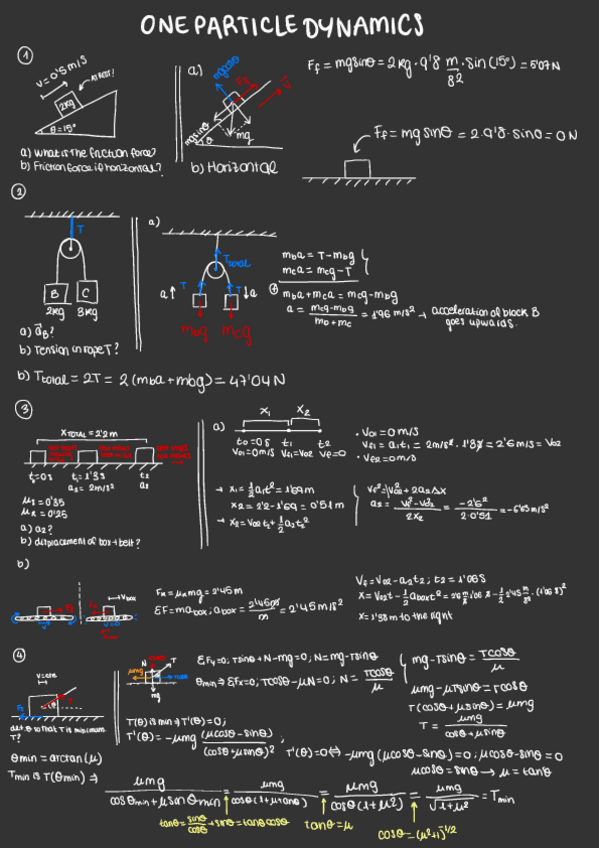 ONE PARTICLE DYNAMICS
①
v=0'5m/s
AT REST?
2kg
θ=15º
a) What is the friction force?
b) Friction force if horizontal?
a)
mgcosθ
Ff
mgsinθ
θ
mg
b) Horizontal
Ff = mgsinθ = 2kg·9'8 m/s2 · sin(15º) = 5'07N
Ff = mgsinθ = 2·9'8·sin0 = 0N
②
T
B
C
2kg
3kg
a) aB?
b) Tension in rope T?
a)
Ttotal
T
T
a
a
mBg
mCg
mBa = T - mBg
mCa = mCg - T
mBa + mCa = mCg - mBg
a = mCg - mBg / mB + mC = 1'96 m/s2 → acceleration of block B
goes upwards.
b) Ttotal = 2T = 2(mBa + mBg) = 47'04N
③
xTOTAL = 2'2m
t0=0s
t1=1'3s
t2
a1=2m/s2
a2
μs=0'35
μk=0'25
a) a2?
b) displacement of box+belt?
a)
x1
x2
t0=0s
t1
t2
V01=0m/s
Vf1=V02
Vf=0
· V01=0m/s
· Vf1=a1t1 = 2m/s2·1'3s = 2'6m/s = V02
· Vf2=0m/s
→ x1 = 1/2 a1t2 = 1'69m
x2 = 2'2-1'69 = 0'51m
→ x2 = V02t2 + 1/2 a2t2
Vf2 = V02 + 2a2Δx
a2 = Vf2-V02 / 2x2 = -2'62 / 2·0'51 = -6'63m/s2
b)
Vbox
Fk = μkmg = 2'45m
ΣF = mabox; abox = 2'45m / m = 2'45m/s2
Vf = V02 - a2t2; t2 = 1'06s
x = 1'38m to the right
④
v=cte
det. θ so that T is minimum
T?
θmin = arctan(μ)
Tmin is T(θmin) ⇒
μmg
N
T
mg
ΣFy=0; Tsinθ+N-mg=0; N=mg-Tsinθ
θmin ⇒ ΣFx=0; Tcosθ-μN=0; N = Tcosθ / μ
mg-Tsinθ = Tcosθ / μ
μmg-μTsinθ = Tcosθ
T(cosθ+μsinθ) = μmg
T = μmg / cosθ+μsinθ
T(θ) is min ⇒ T'(θ)=0;
T'(θ) = -μmg (μcosθ-sinθ) / (cosθ+μsinθ)2
T'(θ)=0 ⇔ -μmg(μcosθ-sinθ)=0; μcosθ-sinθ=0
μcosθ=sinθ → μ=tanθ
μmg / cosθmin+μsinθmin = μmg / cosθ(1+μtanθ) = μmg / cosθ(1+μ2) = μmg / √1+μ2 = Tmin
tanθ = sinθ / cosθ → sinθ = tanθcosθ
tanθ=μ
cosθ=(μ2+1)-1/2